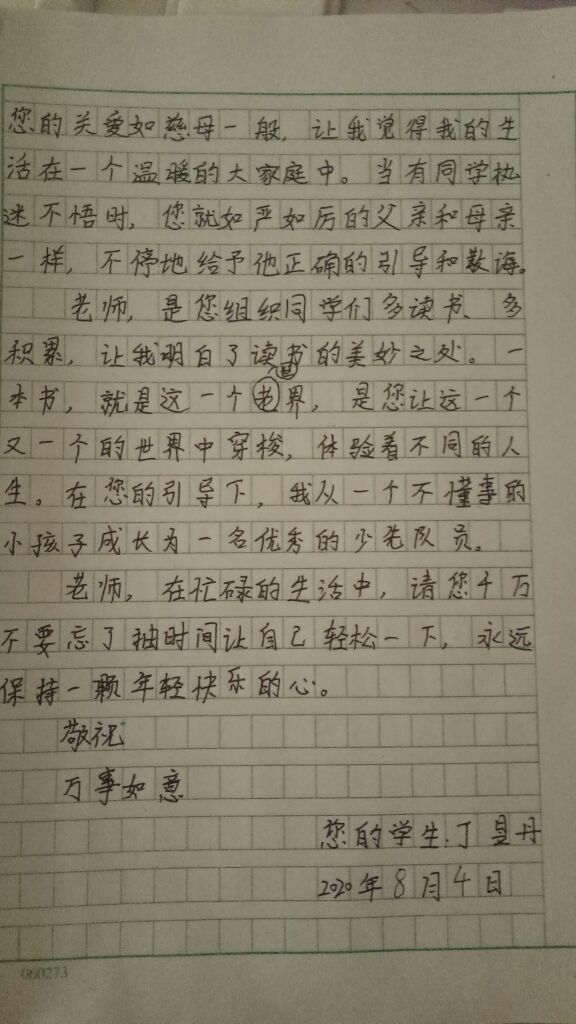 您的关爱如慈母一般，让我觉得我的生
活在一个温暖的大家庭中。当有同学执
迷不悟时，您就如严如厉的父亲和母亲
一样，不停地给予他正确的引导和教诲。
老师，是您组织同学们多读书、多
积累，让我明白了读书的美妙之处。一
本书，就是这一个世界，是您让这一个
又一个的世界中穿梭，体验着不同的人
生。在您的引导下，我从一个不懂事的
小孩子成长为一名优秀的少先队员。
老师，在忙碌的生活中，请您千万
不要忘了抽时间让自己轻松一下，永远
保持一颗年轻快乐的心。
敬祝
万事如意
您的学生：丁昱丹
2020年8月4日
060273